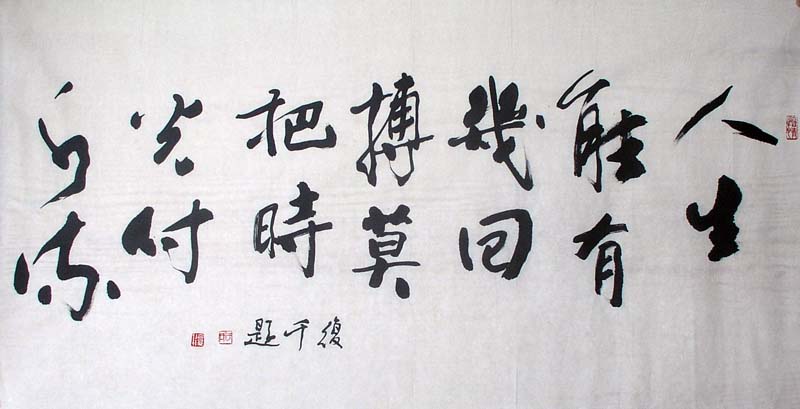 人生
能有
幾回
搏莫
把時
光付
復千題